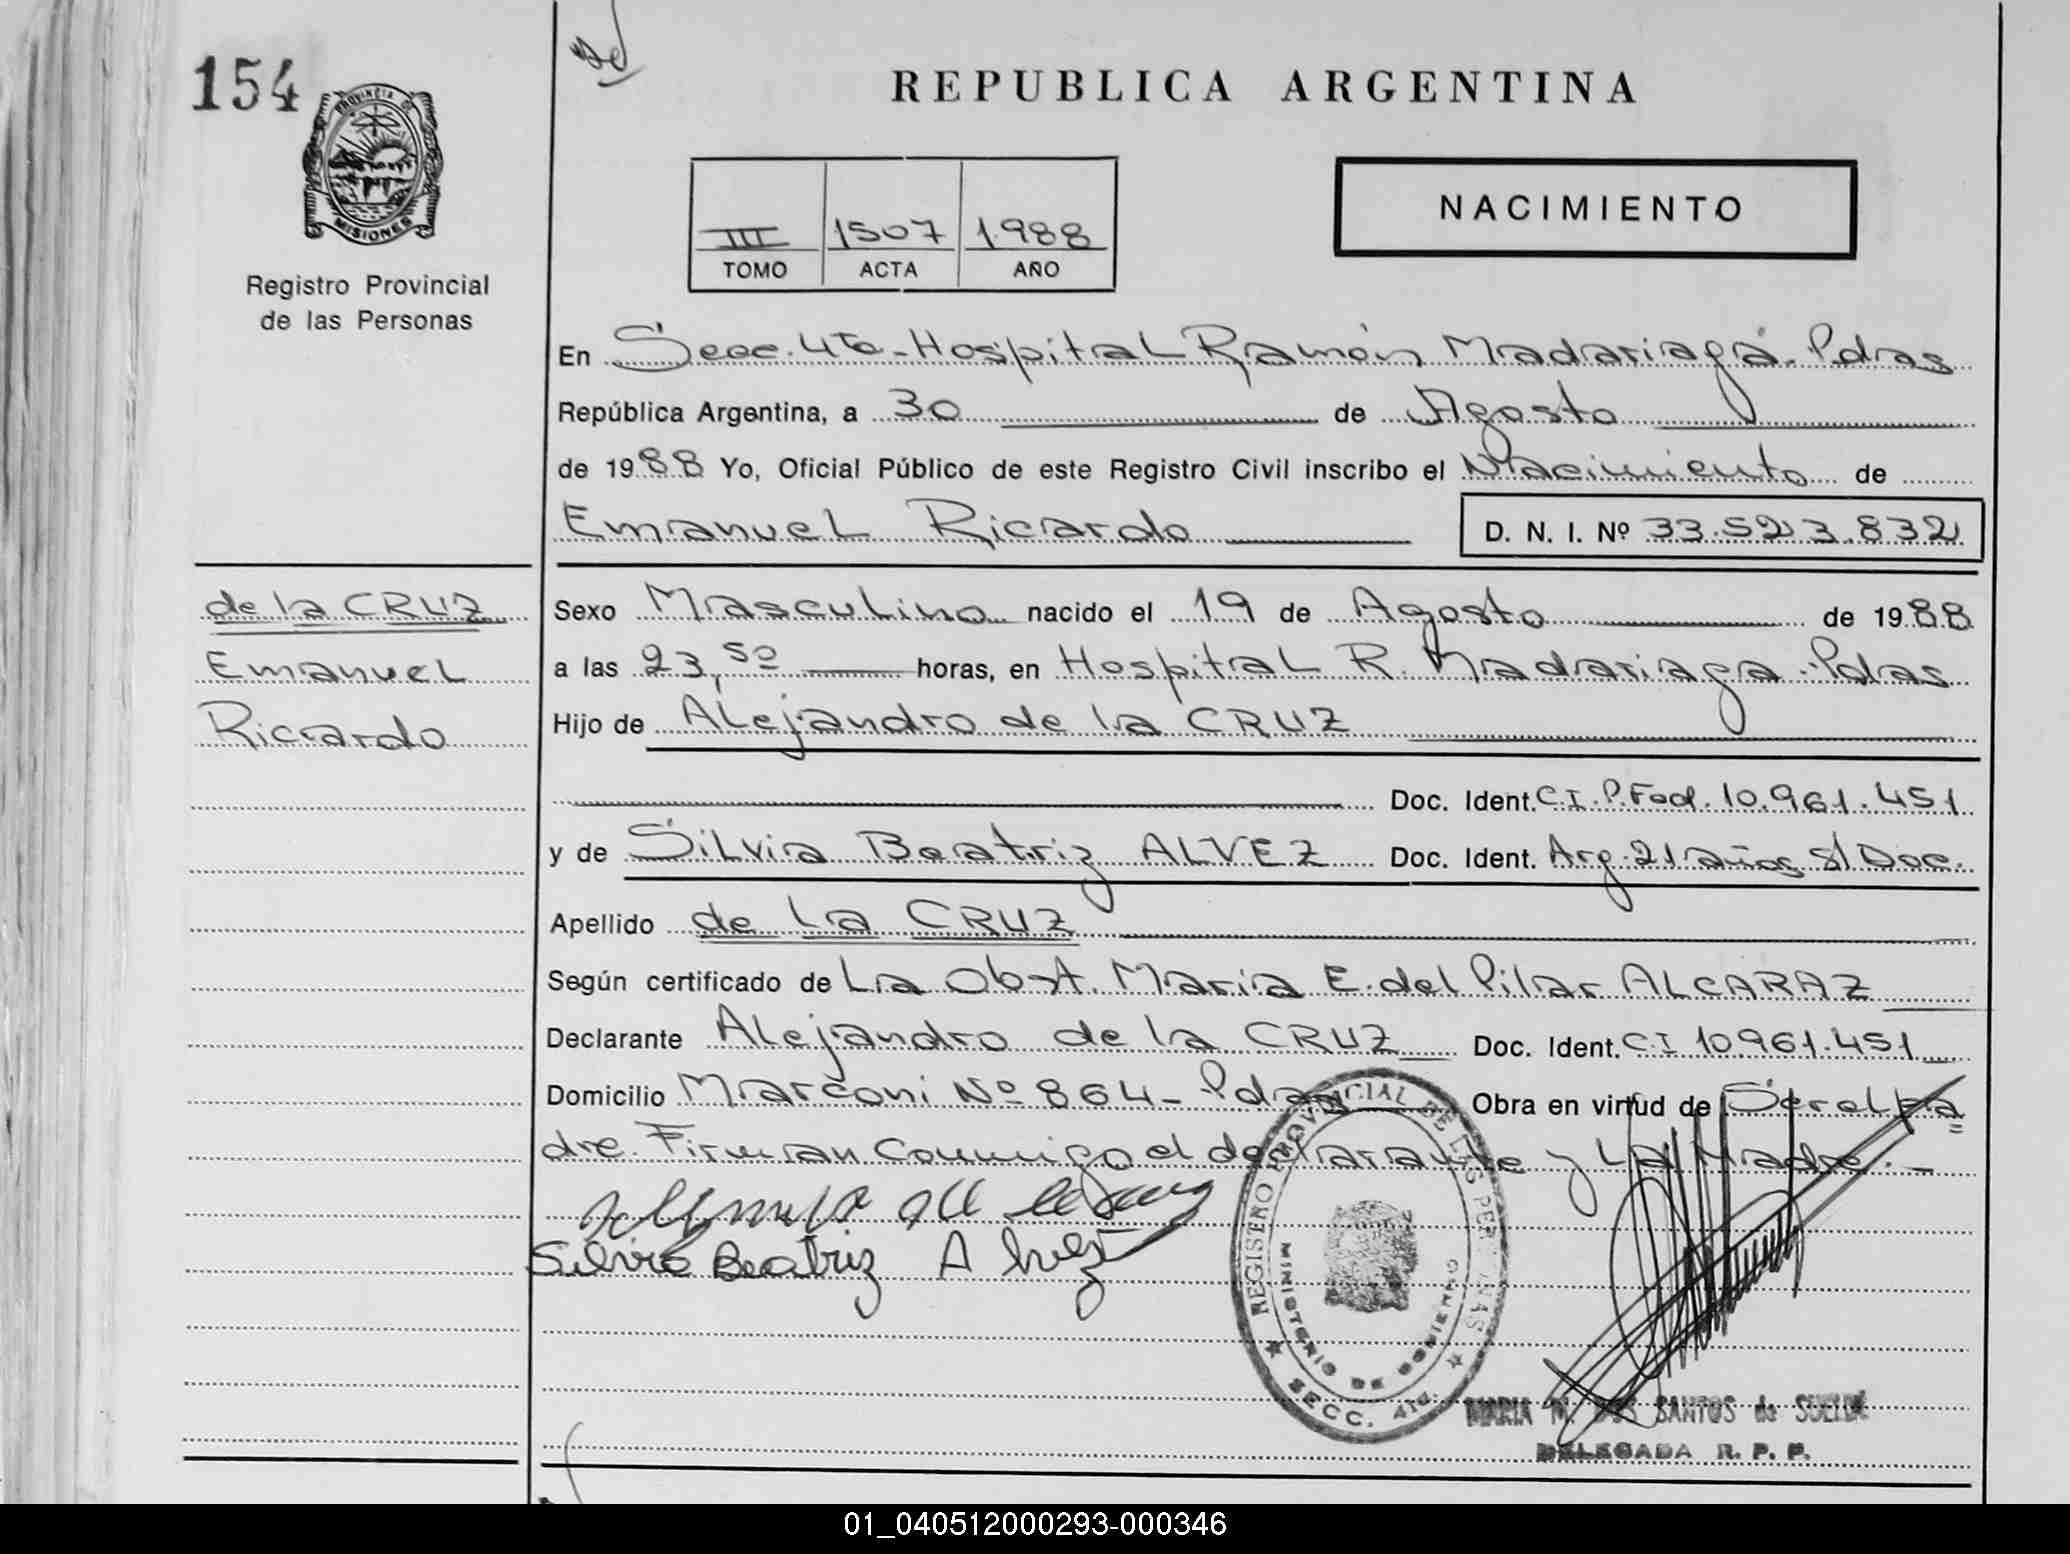 154
REPUBLICA ARGENTINA
PROVINCIA DE
MISIONES
Registro Provincial
de las Personas
III 1507 1988
TOMO ACTA AÑO
NACIMIENTO
En Secc. 4ta - Hospital Ramón Madariaga. Pdas
República Argentina, a 30 de Agosto
de 1988 Yo, Oficial Público de este Registro Civil inscribo el Nacimiento de
Emanuel Ricardo D. N. I. Nº 33.523.832
de la CRUZ
Emanuel
Ricardo
Sexo Masculino nacido el 19 de Agosto de 1988
a las 23,50 horas, en Hospital R. Madariaga. Pdas
Hijo de Alejandro de la CRUZ
Doc. Ident. C.I. P. Fed. 10.961.451
y de Silvia Beatriz ALVEZ Doc. Ident. Arg. 21 años S/Doc.
Apellido de la CRUZ
Según certificado de La Obst. María E. del Pilar ALCARAZ
Declarante Alejandro de la CRUZ Doc. Ident. CI 10.961.451
Domicilio Marconi Nº 864 - Pdas Obra en virtud de Ser el pa
dre. Firman conmigo el declarante y la Madre. -
Silvia Beatriz Alvez
REGISTRO PROVINCIAL DE LAS PERSONAS
MINISTERIO DE GOBIERNO
SECC. 4ta.
MARIA M. DOS SANTOS de SUELDE
DELEGADA R. P. P.
01_040512000293-000346